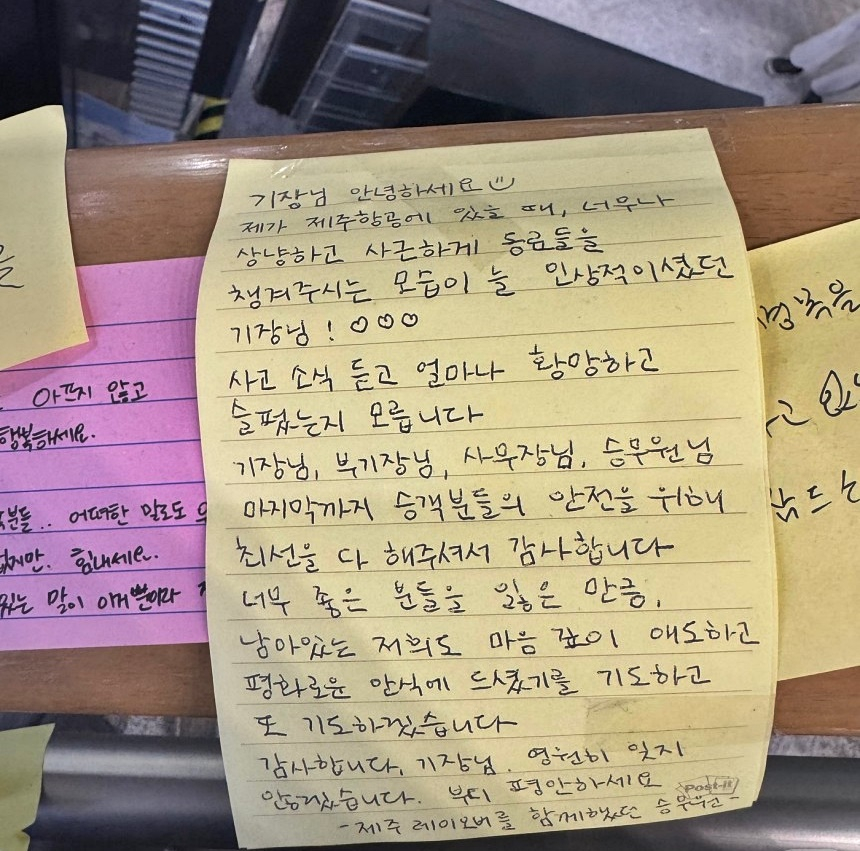 기장님 안녕하세요
제가 제주항공에 있을 때, 너무나
상냥하고 사근하게 동료들을
챙겨주시는 모습이 늘 인상적이셨던
기장님! ♡♡♡
사고 소식 듣고 얼마나 황망하고
슬펐는지 모릅니다
기장님, 부기장님, 사무장님, 승무원님
마지막까지 승객분들의 안전을 위해
최선을 다 해주셔서 감사합니다
너무 좋은 분들을 잃은 만큼,
남아있는 저희도 마음 깊이 애도하고
평화로운 안식에 드셨기를 기도하고
또 기도하겠습니다
감사합니다, 기장님. 영원히 잊지
않겠습니다. 부디 평안하세요
-제주 레이오버를 함께했던 승무원-
Post-it
아프지 않고
행복하세요.
분들.. 어떠한 말로도
힘내세요.
있는 말이 이거뿐이라
을
고